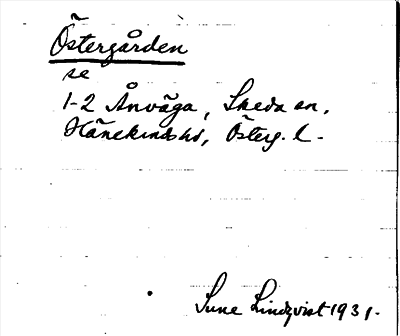 Östergården
se
1-2 Ånväga, Skeda sn,
Hanekinds hd, Österg. l.
Sune Lindqvist 1931.